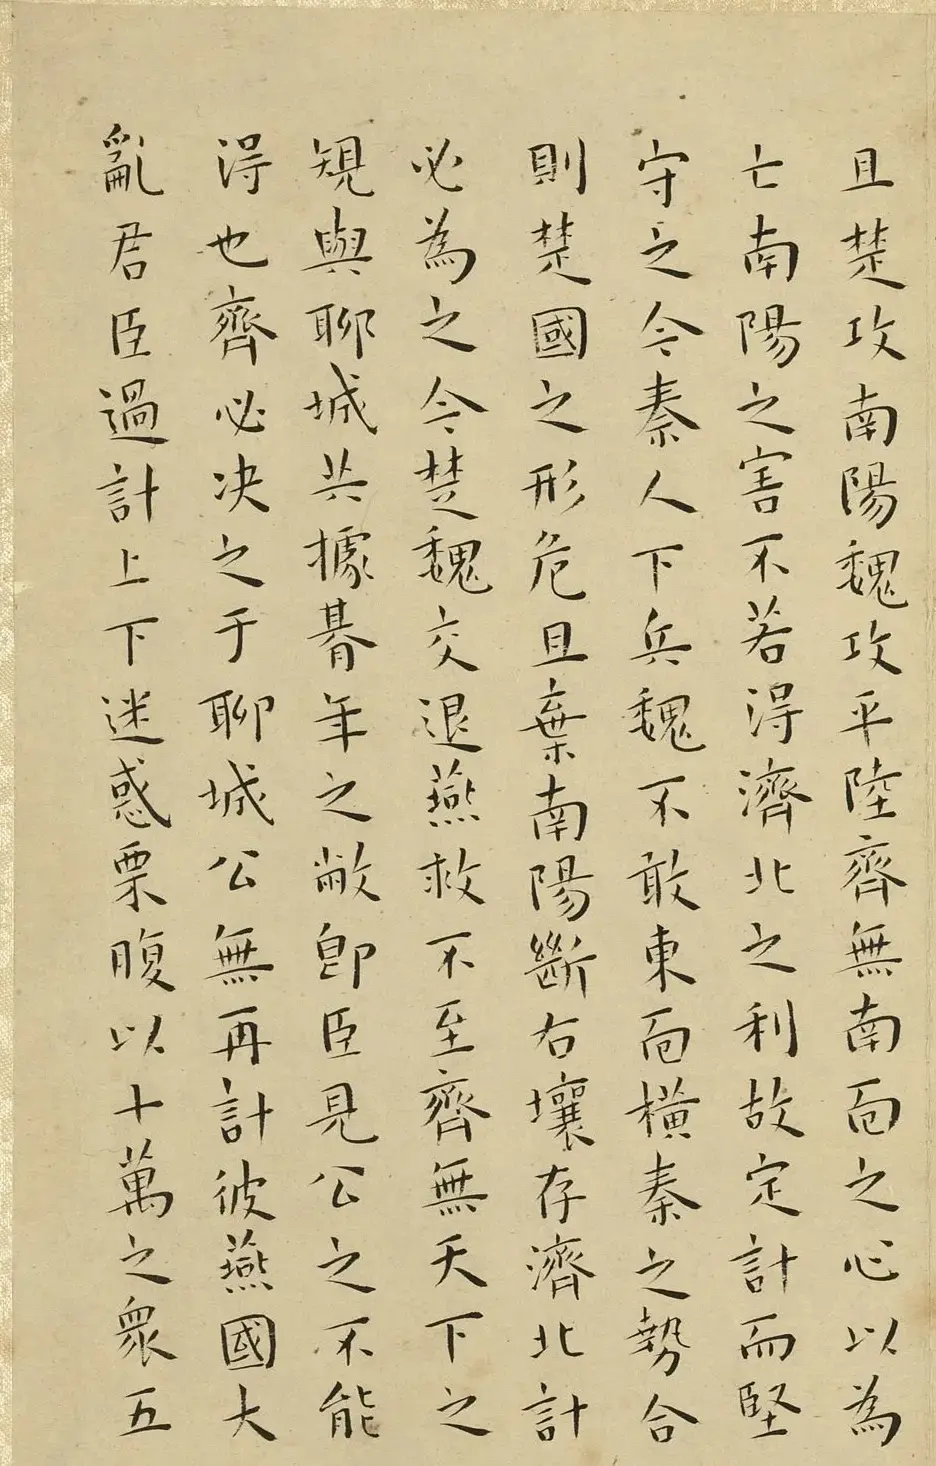 且楚攻南陽魏攻平陸齊無南面之心以為
亡南陽之害不若得濟北之利故定計而堅
守之今秦人下兵魏不敢東面橫秦之勢合
則楚國之形危且棄南陽斷右壤存濟北計
必為之今楚魏交退燕救不至齊無天下之
規與聊城共據朞年之敝即臣見公之不能
得也齊必决之于聊城公無再計彼燕國大
亂君臣過計上下迷惑栗腹以十萬之衆五